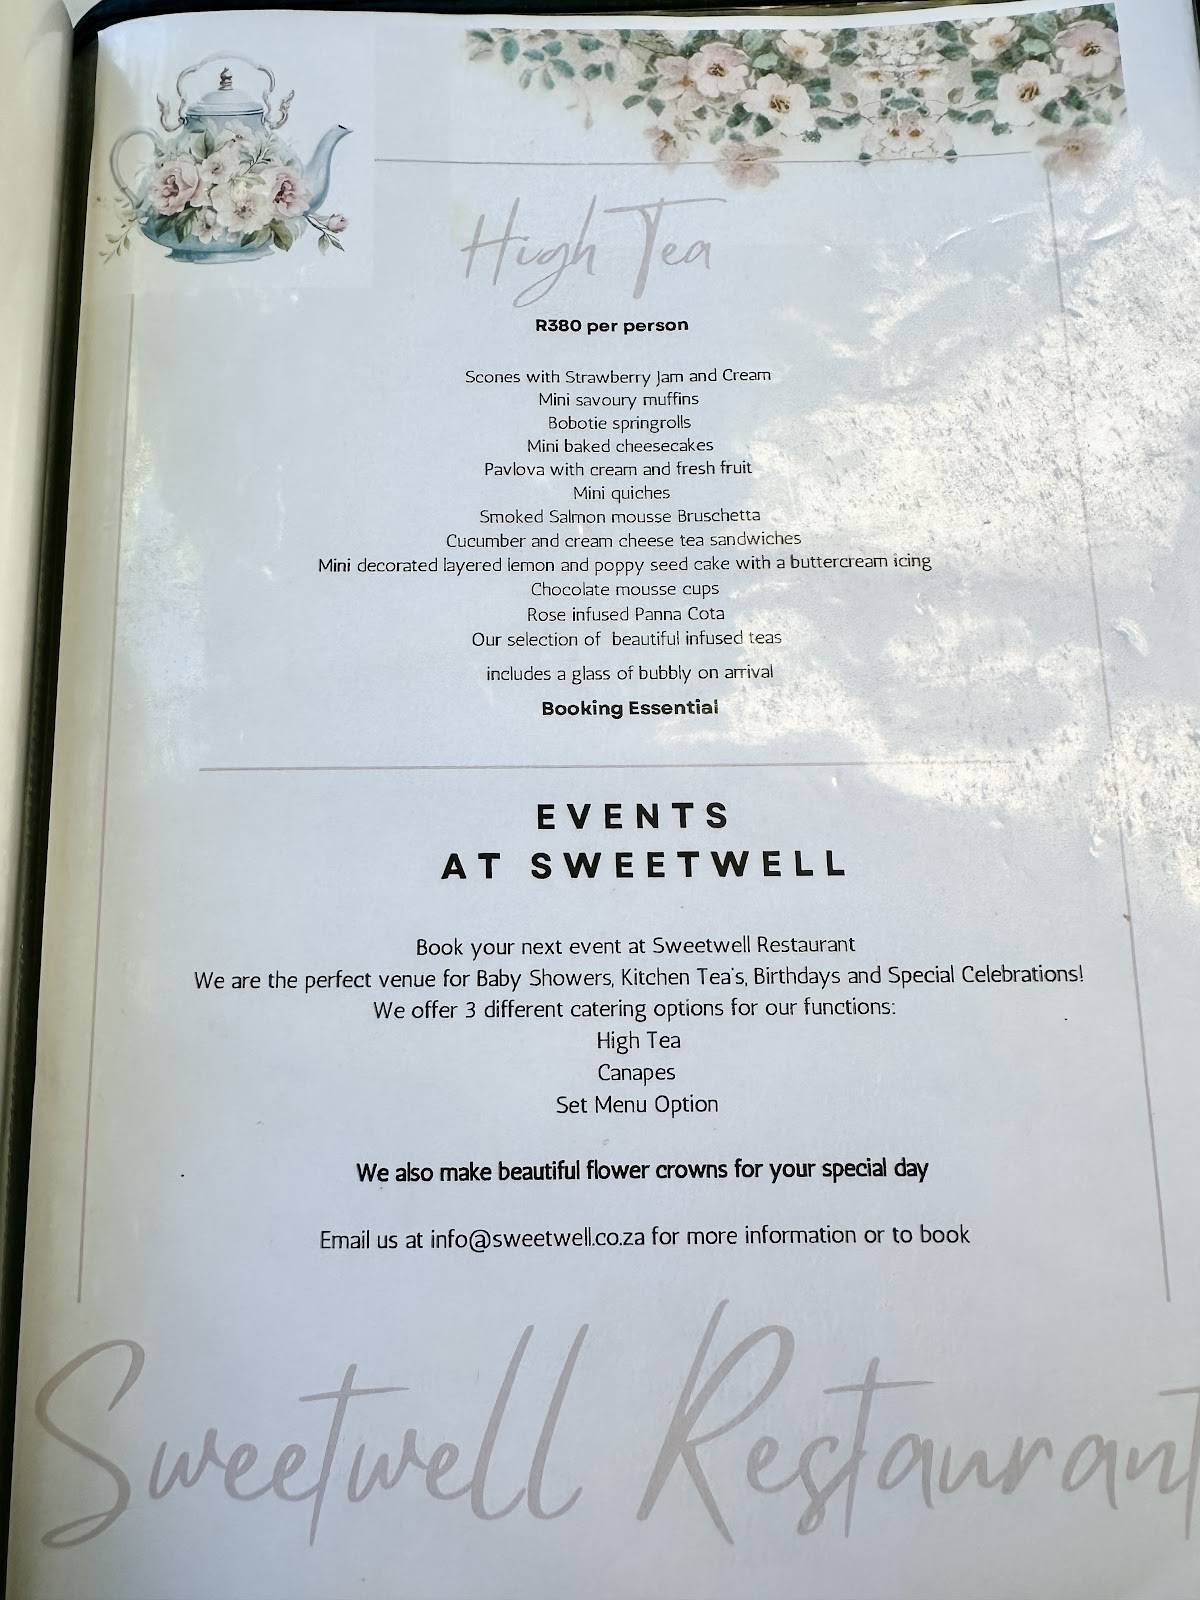 High Tea
R380 per person
Scones with Strawberry Jam and Cream
Mini savoury muffins
Bobotie springrolls
Mini baked cheesecakes
Pavlova with cream and fresh fruit
Mini quiches
Smoked Salmon mousse Bruschetta
Cucumber and cream cheese tea sandwiches
Mini decorated layered lemon and poppy seed cake with a buttercream icing
Chocolate mousse cups
Rose infused Panna Cota
Our selection of beautiful infused teas
includes a glass of bubbly on arrival
Booking Essential
EVENTS
AT SWEETWELL
Book your next event at Sweetwell Restaurant
We are the perfect venue for Baby Showers, Kitchen Tea's, Birthdays and Special Celebrations!
We offer 3 different catering options for our functions:
High Tea
Canapes
Set Menu Option
We also make beautiful flower crowns for your special day
Email us at info@sweetwell.co.za for more information or to book
Sweetwell Restaurant